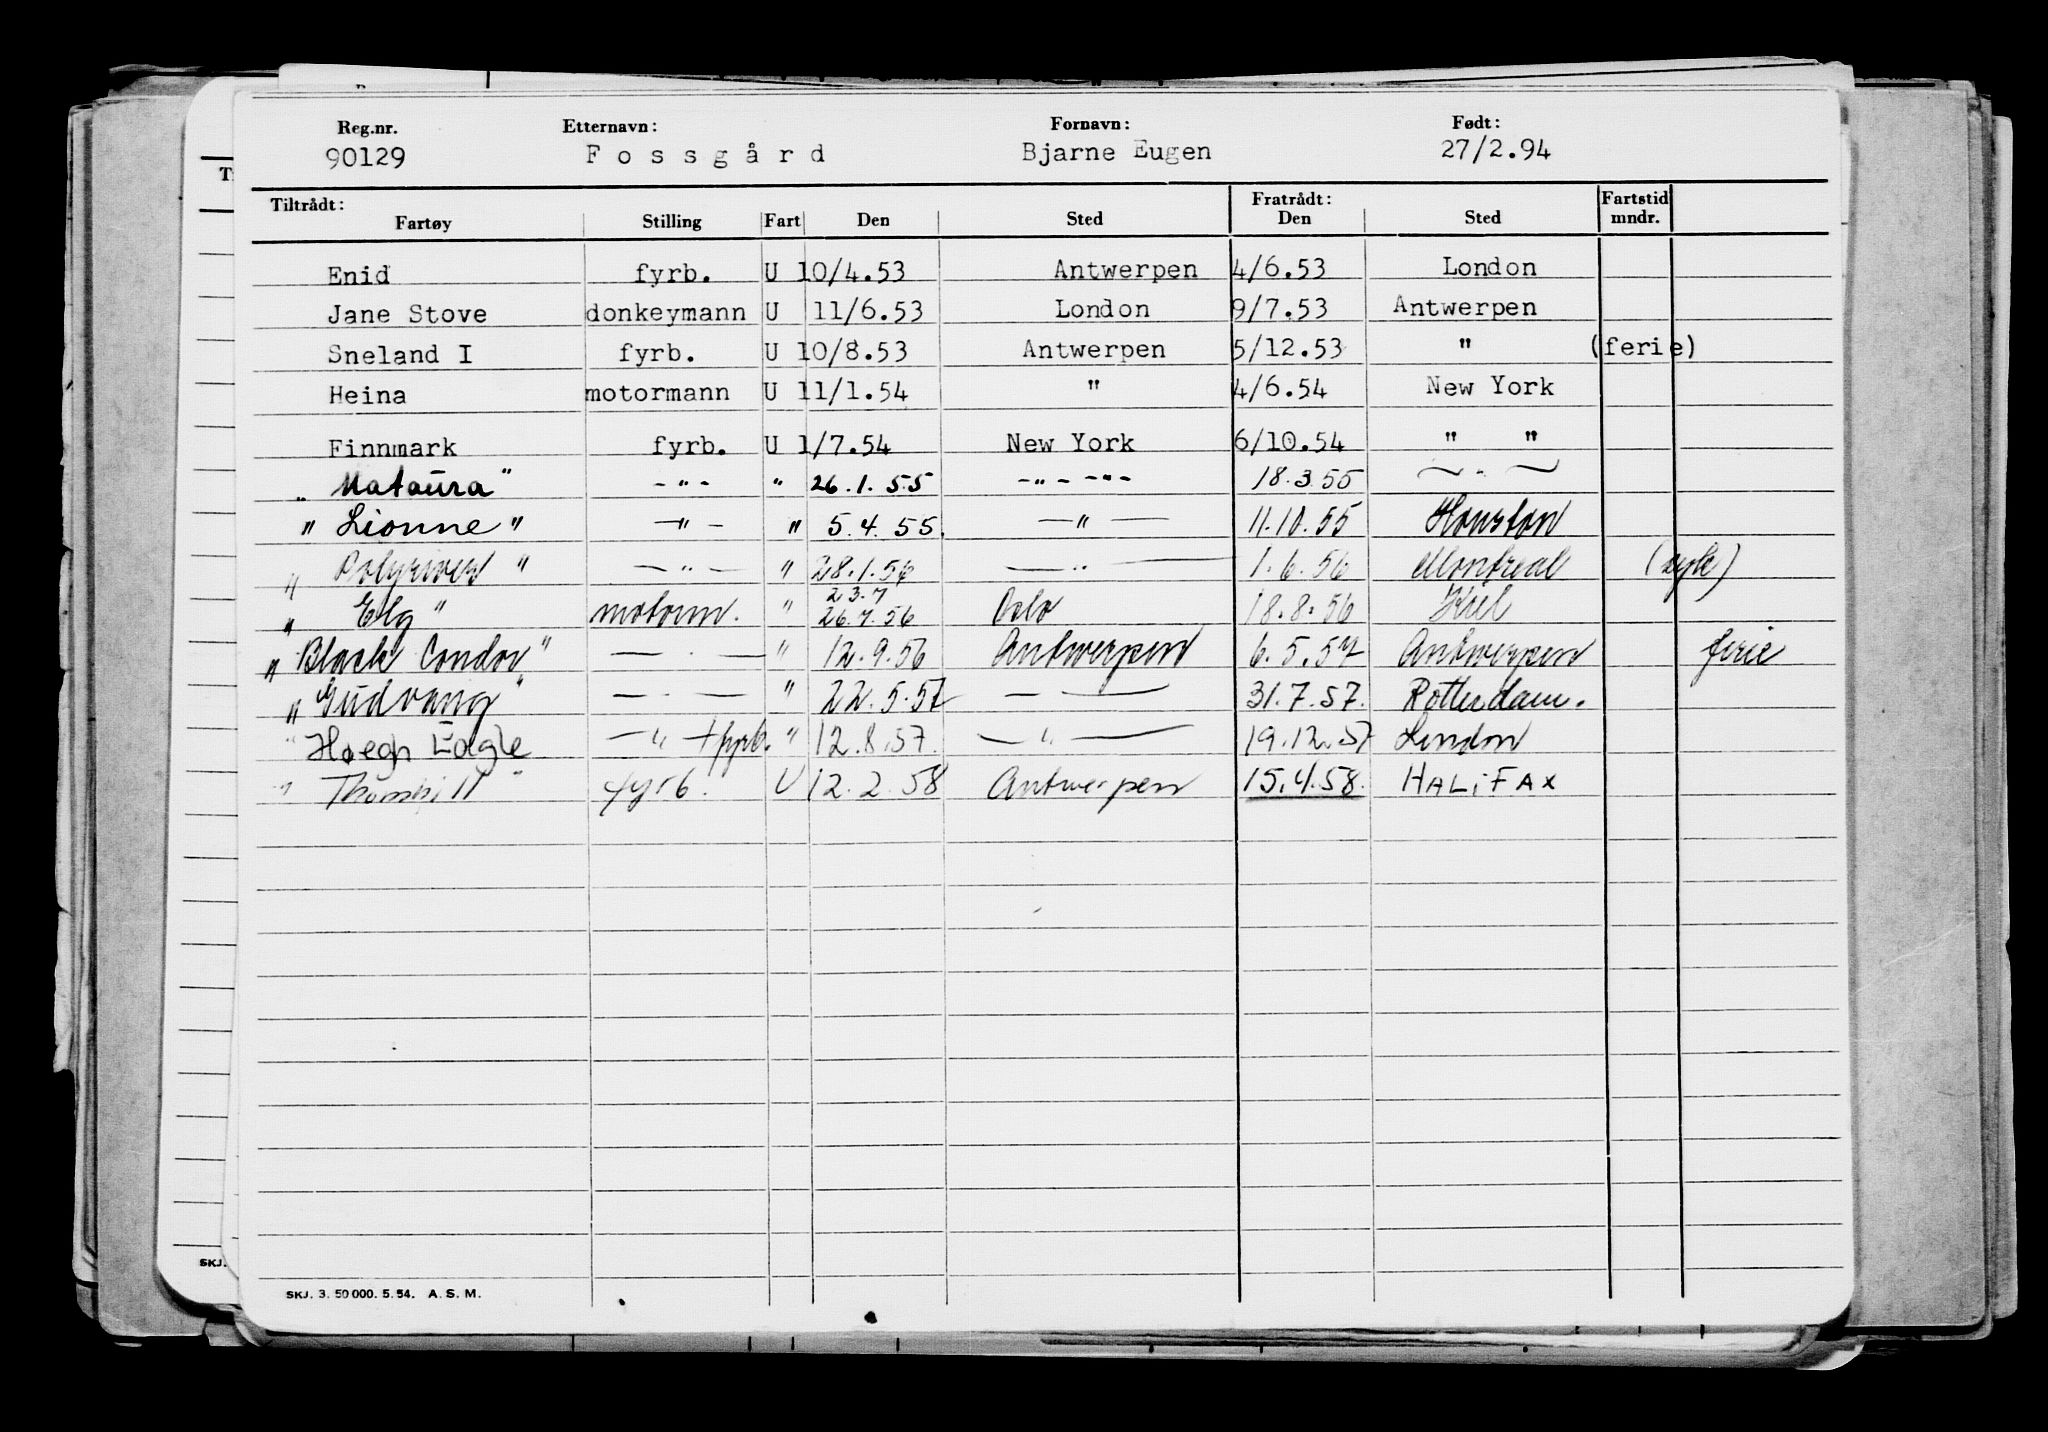 Reg.nr. Etternavn: Fornavn: Født:
90129 F o s s g å r d Bjarne Eugen 27/2.94
Tiltrådt: Fratrådt: Fartstid
Fartøy Stilling Fart Den Sted Den Sted mndr.
Enid fyrb. U 10/4.53 Antwerpen 4/6.53 London
Jane Stove donkeymann U 11/6.53 London 9/7.53 Antwerpen
Sneland I fyrb. U 10/8.53 Antwerpen 5/12.53 " (ferie)
Heina motormann U 11/1.54 " 4/6.54 New York
Finnmark fyrb. U 1/7.54 New York 6/10.54 " "
„ Mataura" -"- " 26.1.55 -"- -"- 18.3.55 — " —
" Lionne" —"— " 5.4.55. —"— 11.10.55 Houston
" Polyriver " —"— " 28.1.56 —"— 1.6.56 Montreal (syk)
23.7
" Elg " motorm. " 26.7.56 Oslo 18.8.56 Kiel
" Black Condor" — " — " 12.9.56 Antwerpen 6.5.57 Antwerpen ferie
" Gudvang" — " — " 22.5.57 — " — 31.7.57. Rotterdam.
" Høegh Eagle —"— + fyrb. " 12.8.57. —"— 19.12.57 London
" " fyrb. U 12.2.58 Antwerpen 15.4.58. HALIFAX
SKJ. 3. 50 000. 5. 54. A. S. M.
SKJ.